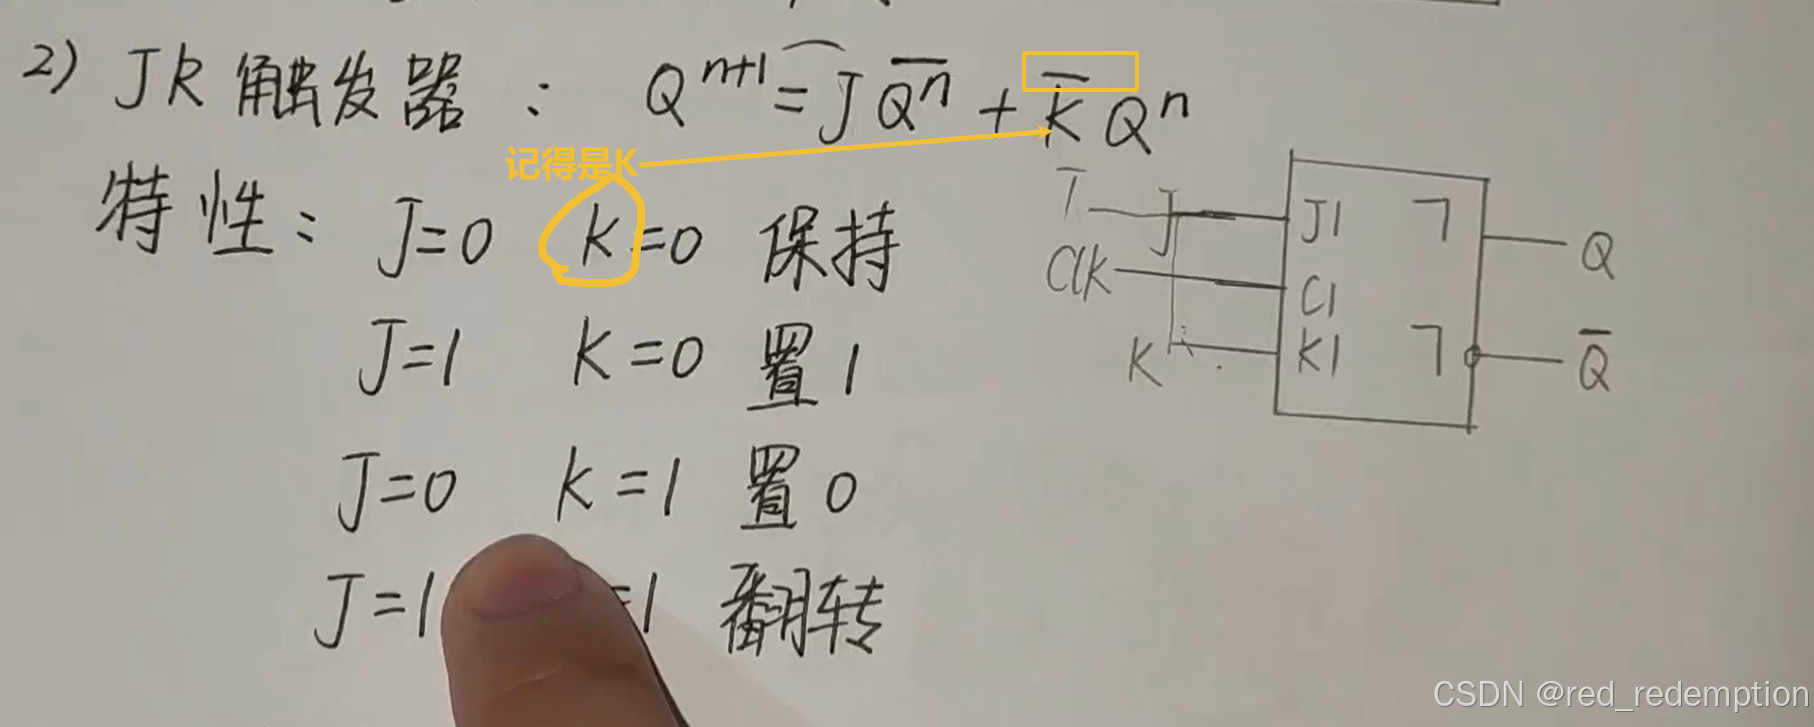 2) JK触发器： Qⁿ⁺¹ = J Q̅ⁿ + K̅ Qⁿ
记得是K
特性： J=0 K=0 保持
J=1 K=0 置1
J=0 K=1 置0
J=1 =1 翻转
T J J1 ㄱ Q
CLK C1
K K1 ㄱ Q̅
CSDN @red_redemption